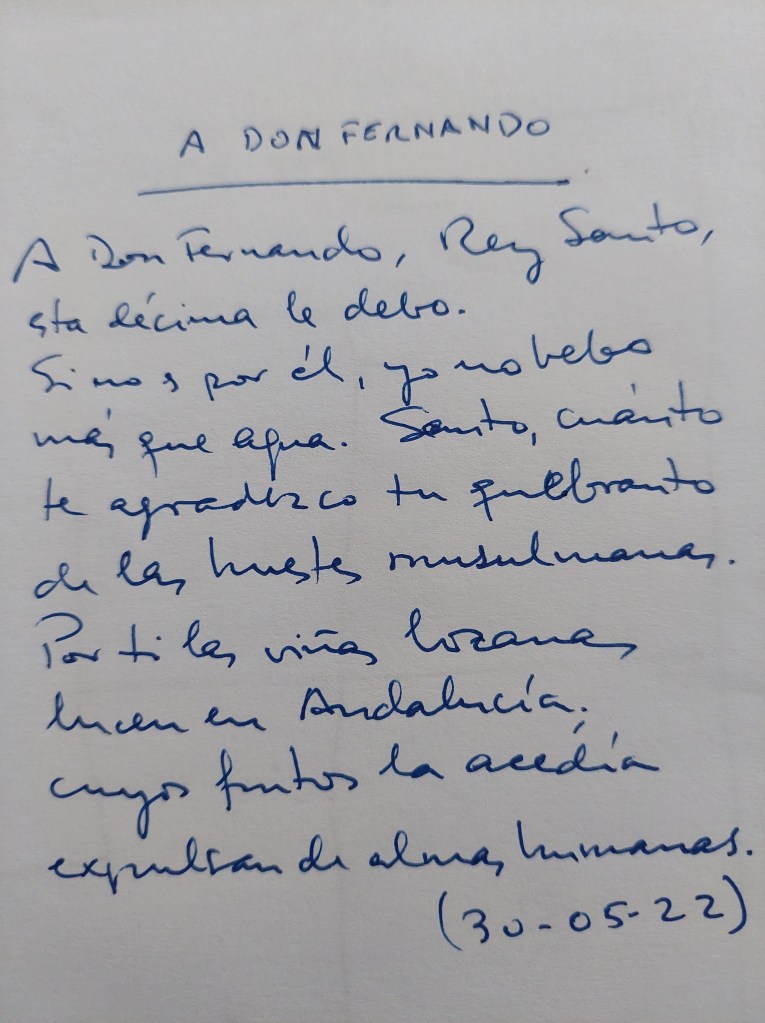 A DON FERNANDO
A Don Fernando, Rey Santo,
esta décima le debo.
Si no es por él, yo no bebo
más que agua. Santo, cuánto
te agradezco tu quebranto
de las huestes musulmanas.
Por ti las viñas lozanas
lucen en Andalucía,
cuyos frutos la acedía
expulsan de almas humanas.
(30-05-22)